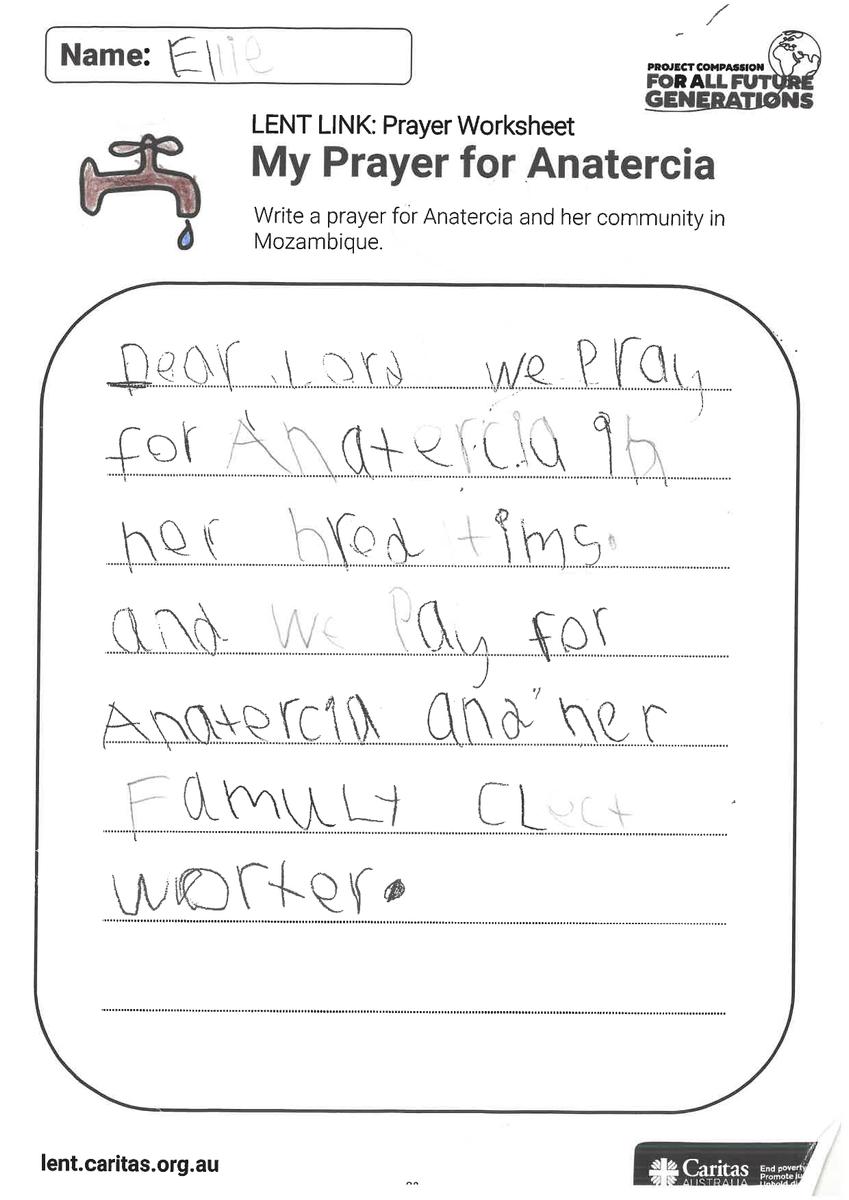 Name: Ellie
PROJECT COMPASSION
FOR ALL FUTURE
GENERATIONS
LENT LINK: Prayer Worksheet
My Prayer for Anatercia
Write a prayer for Anatercia and her community in
Mozambique.
Dear Lord we Pray
for Anatercia in
her hred tims.
and we Pay for
Anatercia and her
Famulty CLect
worter.
lent.caritas.org.au
Caritas
AUSTRALIA
End poverty
Promote ju
Uphold di